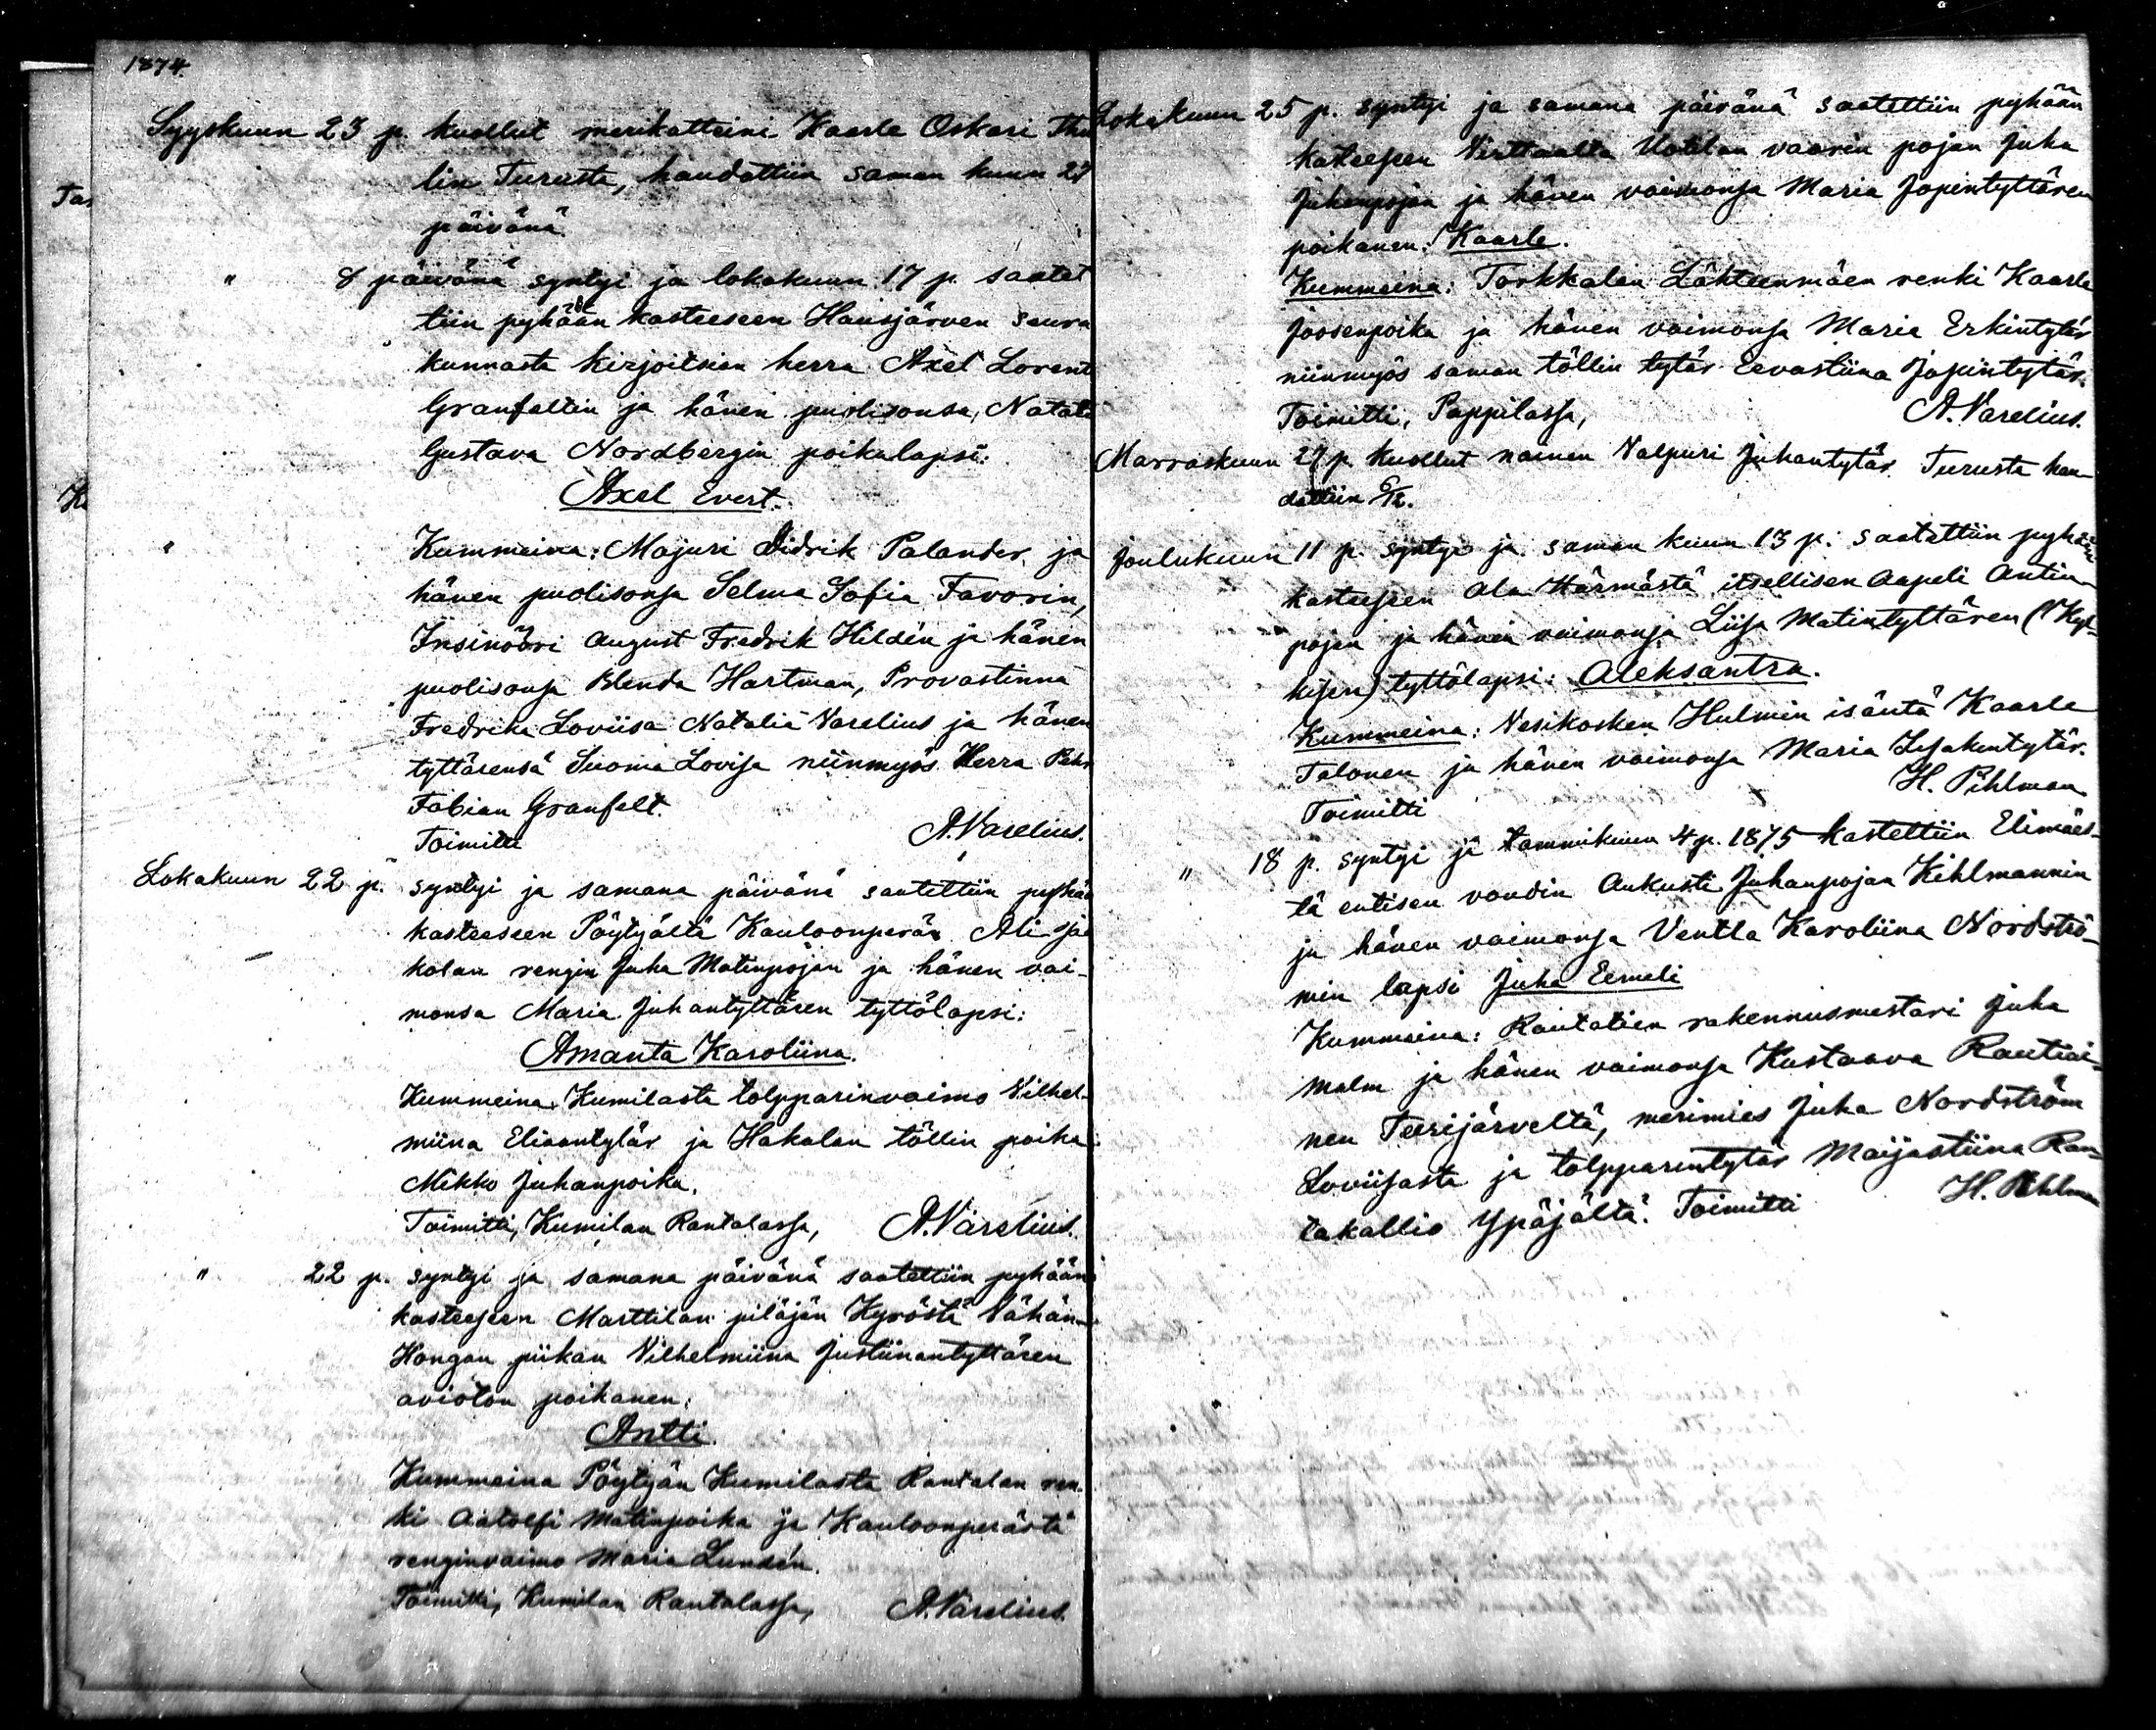 1874.
Syyskuun 23 p. kuollut merikatteini Kaarle Oskari Thu
lin Turusta, haudattiin saman kuun 27
päivänä
" 8 päivänä syntyi ja lokakuun 17 p. saatet
tiin pyhään kasteeseen Hausjärven seura
kunnasta kirjoitsian herra Axel Lorent
Granfeltin ja hänen puolisonsa, Natali
Gustava Nordbergin poikalapsi:
Axel Evert.
" Kummeina: Majuri Didrik Palander, ja
hänen puolisonsa Selma Sofia Favorin,
Insinööri August Fredrik Hildén ja hänen
puolisonsa Blenda Hartman, Provastinna
Fredrika Loviisa Natalia Varelius ja hänen
tyttärensä Suoma Lovisa niinmyös Herra Pehr
Fabian Granfelt.
Toimitti A. Varelius.
Lokakuun 22 p. syntyi ja samana päivänä saatettiin pyhää
kasteeseen Pöytyältä Kauloonperän Ali Ja
kolan rengin Juha Matinpojan ja hänen vai-
monsa Maria Juhantyttären tyttölapsi:
Amanta Karoliina.
Kummeina. Kumilasta tolpparinvaimo Vilhel-
miina Eliaantytär ja Hakalan töllin poika
Mikko Juhanpoika.
Toimitti, Kumilan Rantalassa, A. Varelius.
" 22 p. syntyi ja samana päivänä saatettiin pyhään
kasteeseen Marttilan pitäjän Kyröstä Vähän-
Hongan piikan Vilhelmiina Justiinantyttären
aviotön poikanen:
Antti.
Kummeina Pöytyän Kumilasta Rantalan ren-
ki Aatolfi Matinpoika ja Kauloonperästä
renginvaimo Maria Lundén.
Toimitti, Kumilan Rantalassa, A. Varelius.
Lokakuun 25 p. syntyi ja samana päivänä saatettiin pyhään
kasteeseen Virttaalta Uotilan vaarin pojan Juha
Juhanpojan ja hänen vaimonsa Maria Jopintyttären
poikanen: Kaarle.
Kummeina: Torkkalan Lähteenmäen renki Kaarle
Joosenpoika ja hänen vaimonsa Maria Erkintytär
niinmyös saman töllin tytär Eevastiina Jopintytär.
Toimitti, Pappilassa, A. Varelius.
Marraskuun 27 p. kuollut nainen Valpuri Juhantytär Turusta hau-
dattiin 6/12.
Joulukuun 11 p. syntyi ja saman kuun 13 p. saatettiin pyhään
kasteeseen Ala Härmästä itsellisen Aapeli Antin-
pojan ja hänen vaimonsa Liisa Matintyttären
tyttölapsi: Aleksantra.
Kummeina: Vesikosken Hulmin isäntä Kaarle
Talonen ja hänen vaimonsa Maria Isakintytär.
Toimitti H. Pihlman
" 18 p. syntyi ja tammikuun 4 p. 1875 kastettiin Elimäes-
tä entisen voudin Aukusti Juhanpojan Kihlmannin
ja hänen vaimonsa Ventla Karoliina Nordströ-
min lapsi Juha Eemeli
Kummeina: Rautatien rakennusmestari Juha
Malm ja hänen vaimonsa Kustaava Rautiai-
nen Teerijärveltä, merimies Juha Nordström
Loviisasta ja tolpparintytär Maijastiina Ran-
takallio Ypäjältä. Toimitti H. Pihlman